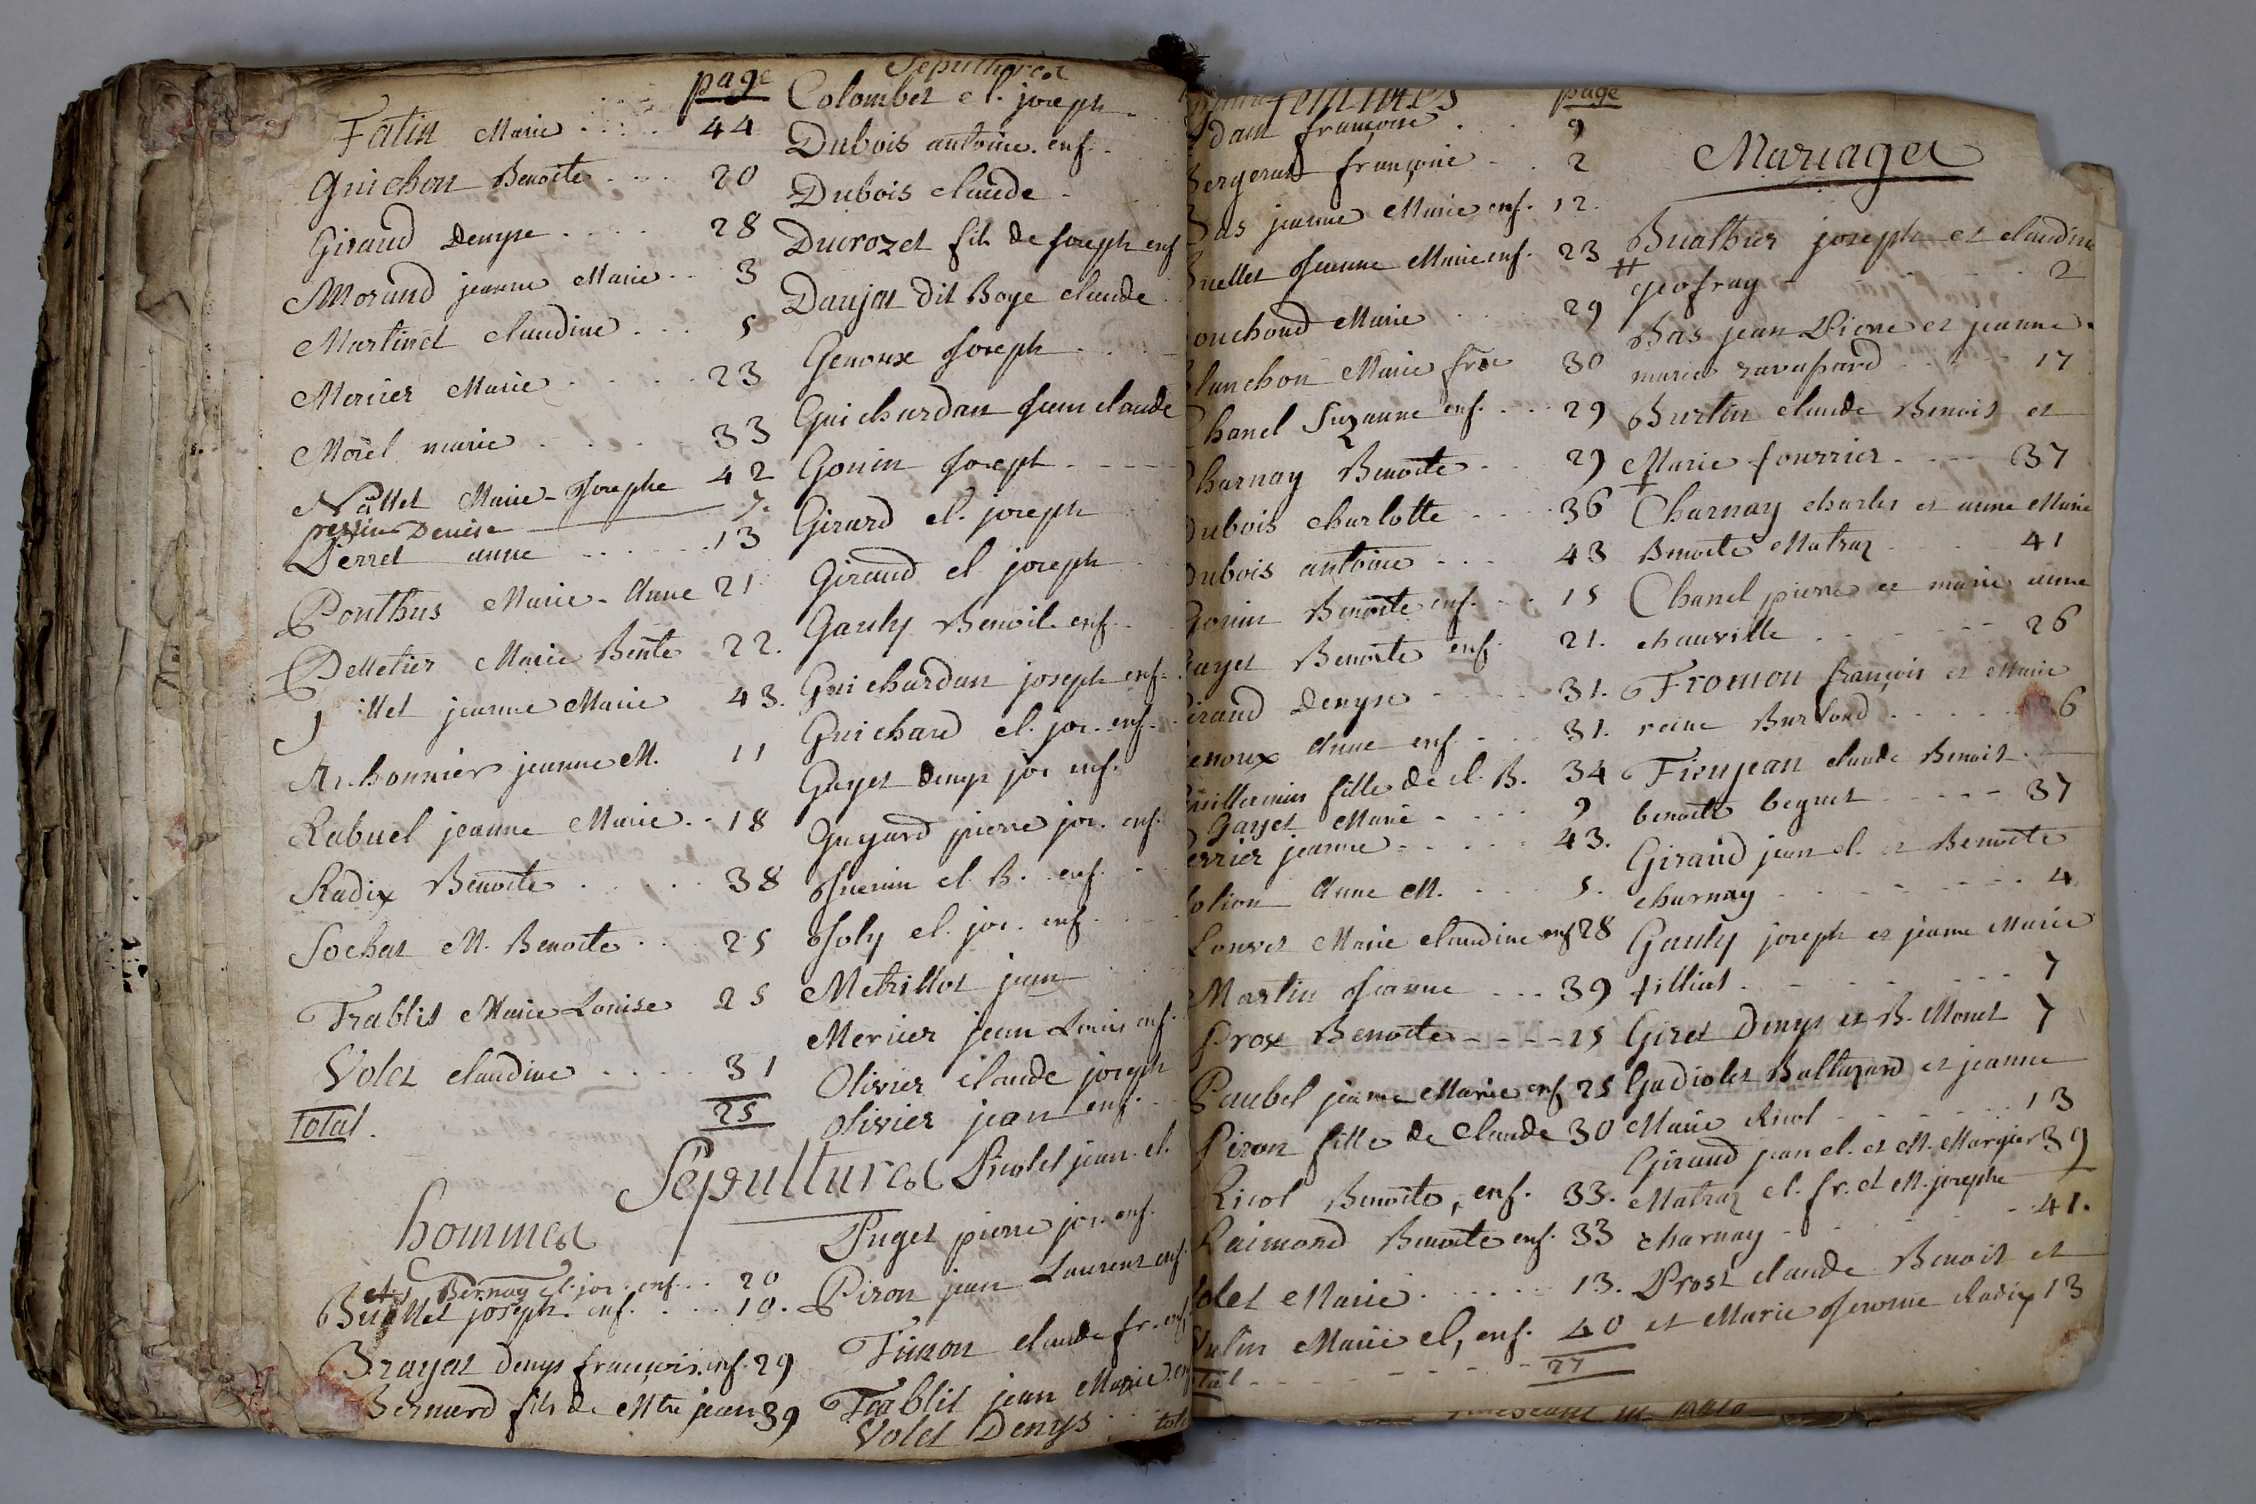 page
Fatin Marie . . . . . 44
Guichon Benoite . . . . 20
Giraud Denyse . . . . 28
Morand jeanne Marie . . 3
Martinet claudine . . . 5
Mercier Marie . . . . . 23
Morel marie . . . . 33
Nallet Marie-Josephe 42
Denise 7.
Perret anne . . . . . . 13
Ponthus Marie-Anne 21
Pelletier Marie Benoite 22.
jeanne Marie 43.
jeanne M. 11
Rabuel jeanne Marie . . 18
Radix Benoite . . . . . 38
Sochat M. Benoite . . 25
Trablit Marie Louise 25
Volet claudine . . . . 31
total. 25
Sépultures
hommes
Bernay cl. jos. enf. . . 20
Buellet joseph. enf. . . . 10.
Brayat Denys françois. enf. 29
Bernard fils de Mtre jean 39
Sepultures
Colombet cl. joseph
Dubois antoine. enf.
Dubois claude
Ducrozet fils de joseph enf
Danjat dit Boye claude
Genoux Joseph
Guichardan Jean claude
Gonin Joseph
Girard cl. joseph
Giraud cl. joseph
Gauly Benoit enf.
Guichardan joseph enf.
Guichard cl. jos. enf.
Gayet Denys jos enf.
Guyard pierre jos. enf.
Guenin cl. B. enf.
Joly cl. jos. enf.
Metrillot jean
Mercier jean Louis enf.
Olivier claude joseph
olivier jean enf.
Picolet jean. cl.
Puget pierre jos. enf.
Piron jean Laurent enf.
Timon claude fr. enf
Trablit jean Marie enf
Volet Denys
femmes page
dam françoise . . . 9
Bergeran françoise . . 2
Bas jeanne Marie enf. 12.
Buellet Jeanne Marie enf. 23
ouchoud Marie . . . 29
Blanchon Marie frse 30
Chanel Suzanne enf. . . . 29
Charnay Benoite . . 29
Dubois charlotte . . . . 36
Dubois antoine . . . 43
Gonin Benoite enf. . . 15
Gayet Benoite enf. 21.
Giraud Denyse . . . . 31.
Genoux Anne enf. . . . 31.
Guillermin fille de cl. B. 34
Gayet Marie . . . . 9
errier jeanne . . . . . 43.
olion Anne M. . . . 5.
Louvet Marie claudine enf 28
Martin Jeanne . . . 39
Prox Benoite . . . . 25
Paubel jeanne Marie enf 25
Piron fille de Claude 30
Ricol Benoite, enf. 33.
Raimond Benoite enf. 33
Volet Marie . . . . . . 13.
Marie cl, enf. 40
27
Mariages
Buathier joseph et claudine
geofray . . . . 2
Bas jean Pierre et jeanne
marie ravassard . . . . 17
Burtin claude Benoit et
Marie fourrier . . . . 37
Charnay charles et anne Marie
Benoite Matraz . . . . 41
Chanel pierre et marie anne
chauville . . . . . . 26
Fromon françois et Marie
reine Burlond . . . . . 26
Frenjean claude Benoit
benoite beguet . . . . . 37
Giraud jean cl. et Benoite
charnay . . . . . . . 4
Gauly joseph et jeanne Marie
filliat . . . . . . . 7
Giret Denys et B. Monet 7
Gadiolet Baltazard et jeanne
Marie Ricol . . . . . . 13
Giraud jean cl. et M. Margier 39
Matraz cl. fr. et M. josephe
charnay . . . . . . 41.
Prost claude Benoit et
et Marie Jerome Radix 13